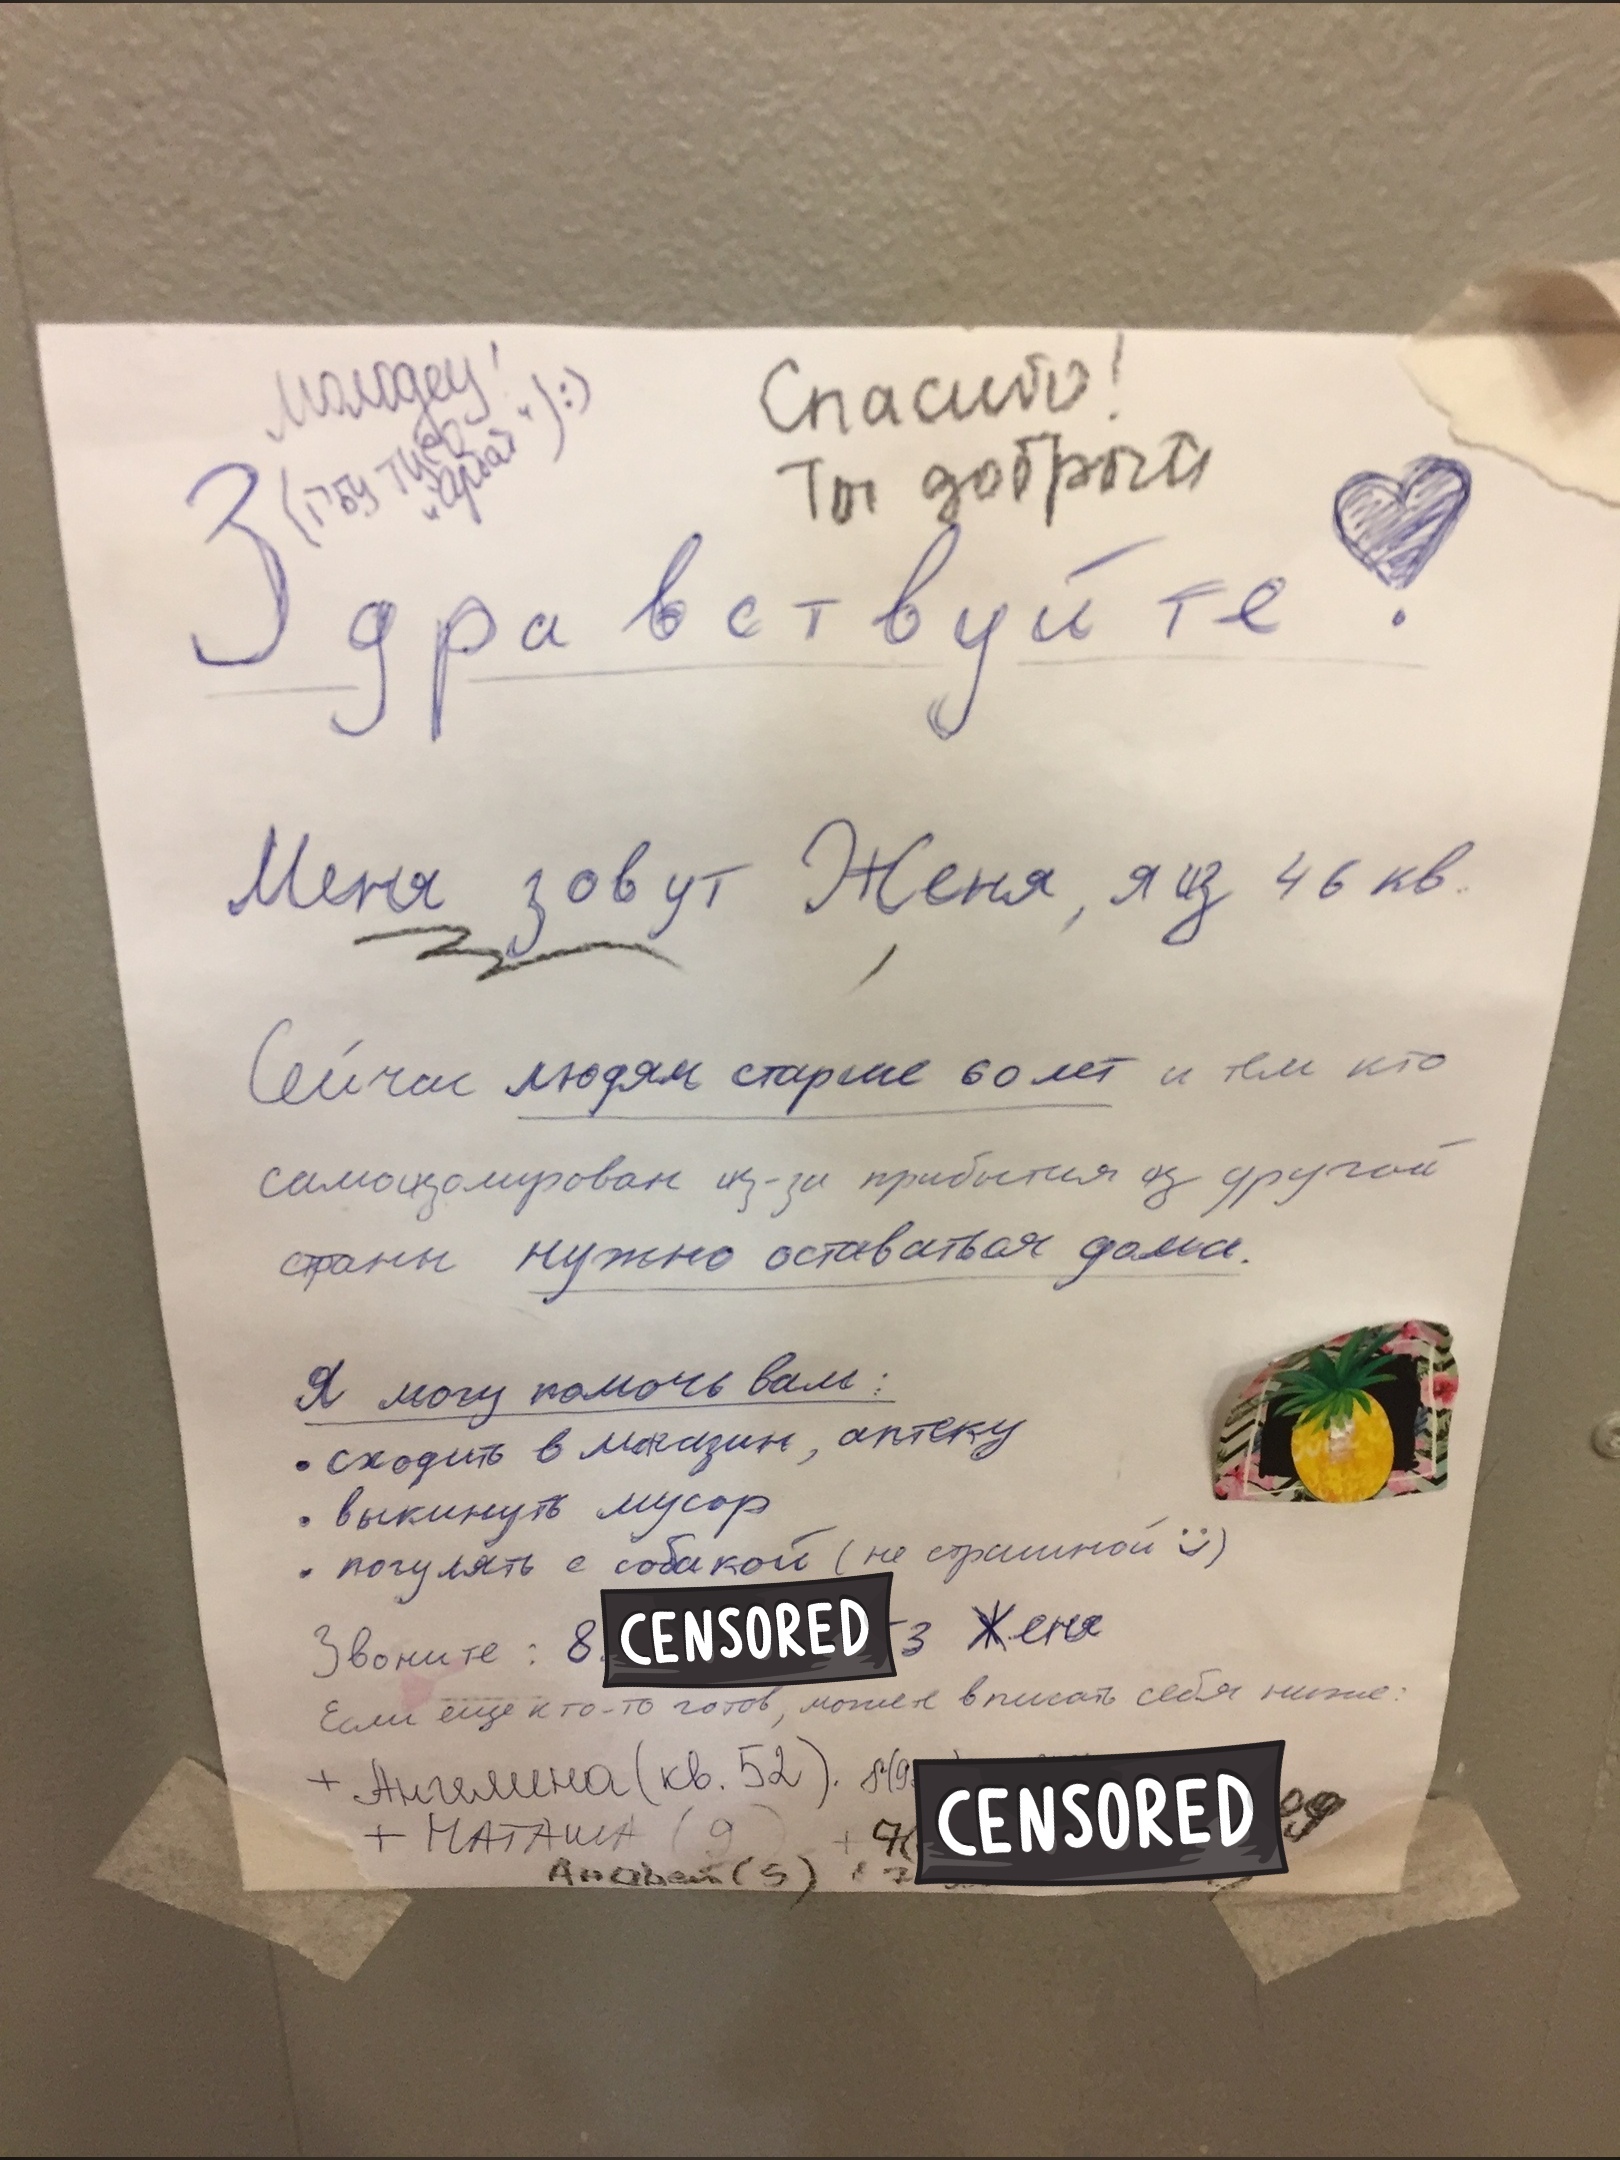 Молодец!
(ГБУ ТЦСО
"Арбат") :)
Спасибо!
Ты добрый
Здравствуйте!
Меня зовут Женя, я из 46 кв.
Сейчас людям старше 60 лет и тем кто
самоизолирован из-за прибытия из другой
страны нужно оставаться дома.
Я могу помочь вам:
• сходить в магазин, аптеку
• выкинуть мусор
• погулять с собакой (не страшной :))
Звоните: 8 CENSORED -3 Женя
Если еще кто-то готов, может вписать себя ниже:
+ Ангелина (кв. 52). 8(9 CENSORED
+ НАТАША (9) +
Андрей (5)